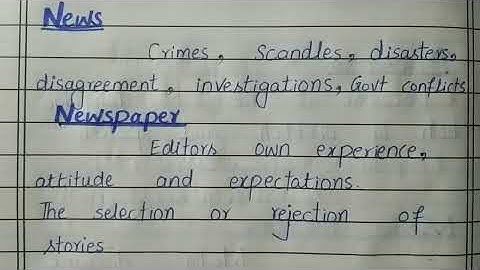 News
Crimes, scandles, disasters,
disagreement, investigations, Govt conflicts
Newspaper
Editors own experience,
attitude and expectations.
The selection or rejection of
stories